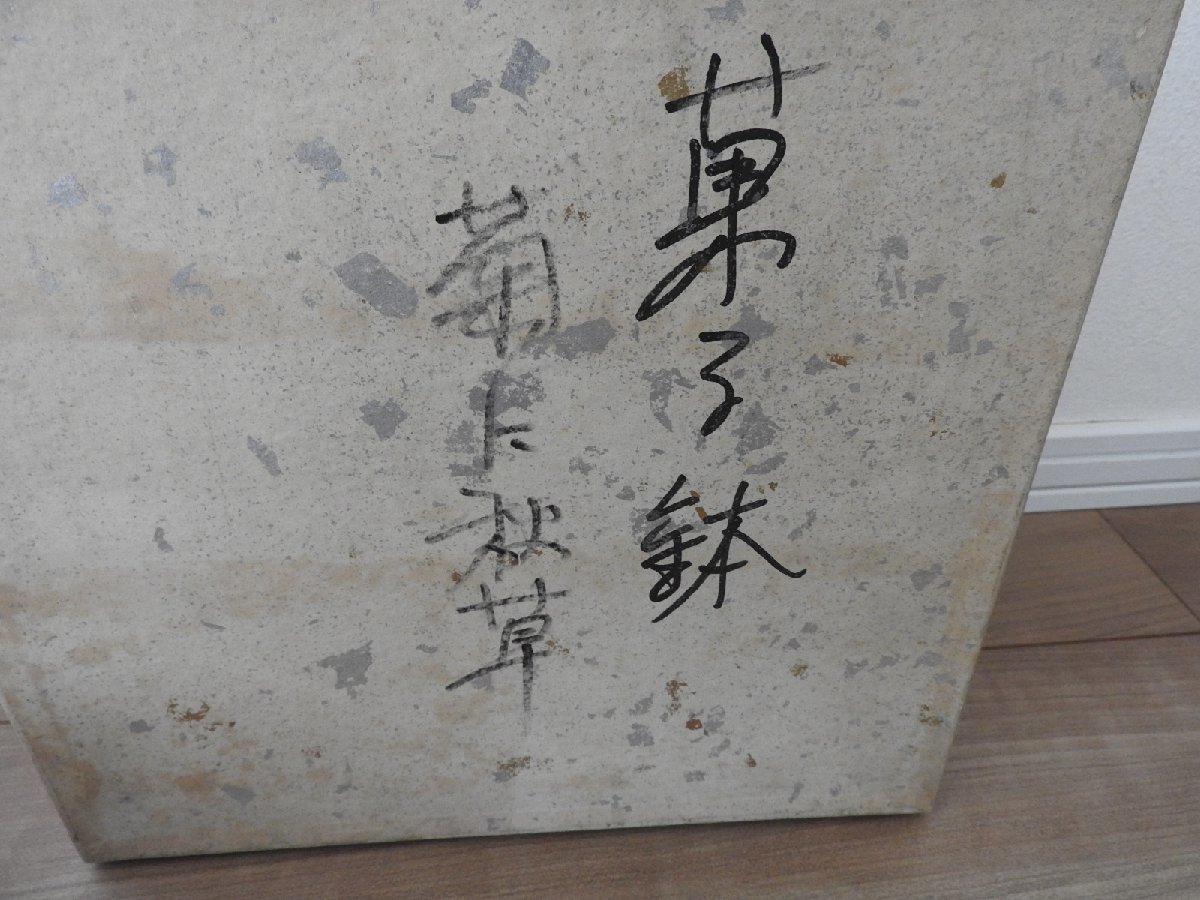 菓子鉢
菊に秋草